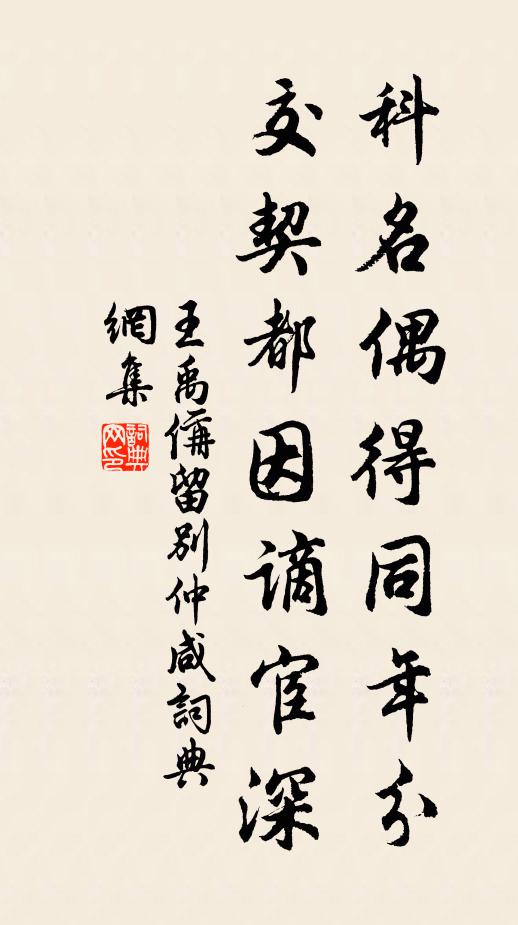 科名偶得同年分
交契都因謫宦深
王禹偁留別仲咸詞典
網集
詞典網印